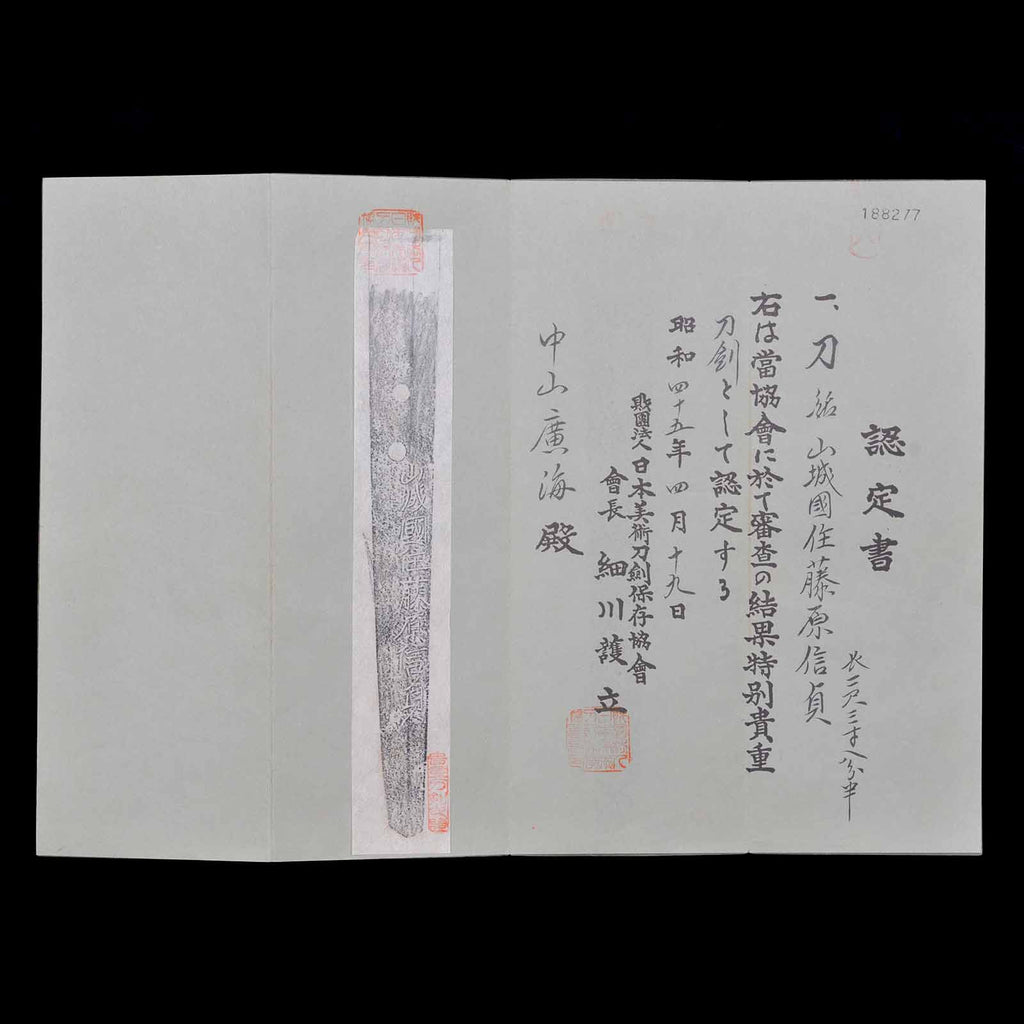 188277
認定書
一、刀 銘 山城國住藤原信貞
長二尺三寸八分半
右は當協會に於て審査の結果特別貴重
刀劍として認定する
昭和四十五年四月十九日
財團法人日本美術刀劍保存協會
會長 細川護立
中山廣海殿
山城國住藤原信貞